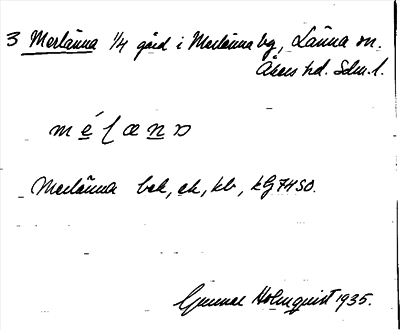 3 Merlänna 1/4 gård i Merlänna by, Länna sn.
Åkers hd. Sdm. l.
Merlänna bek, ek, kb, kG 7450.
Gunnar Holmquist 1935.